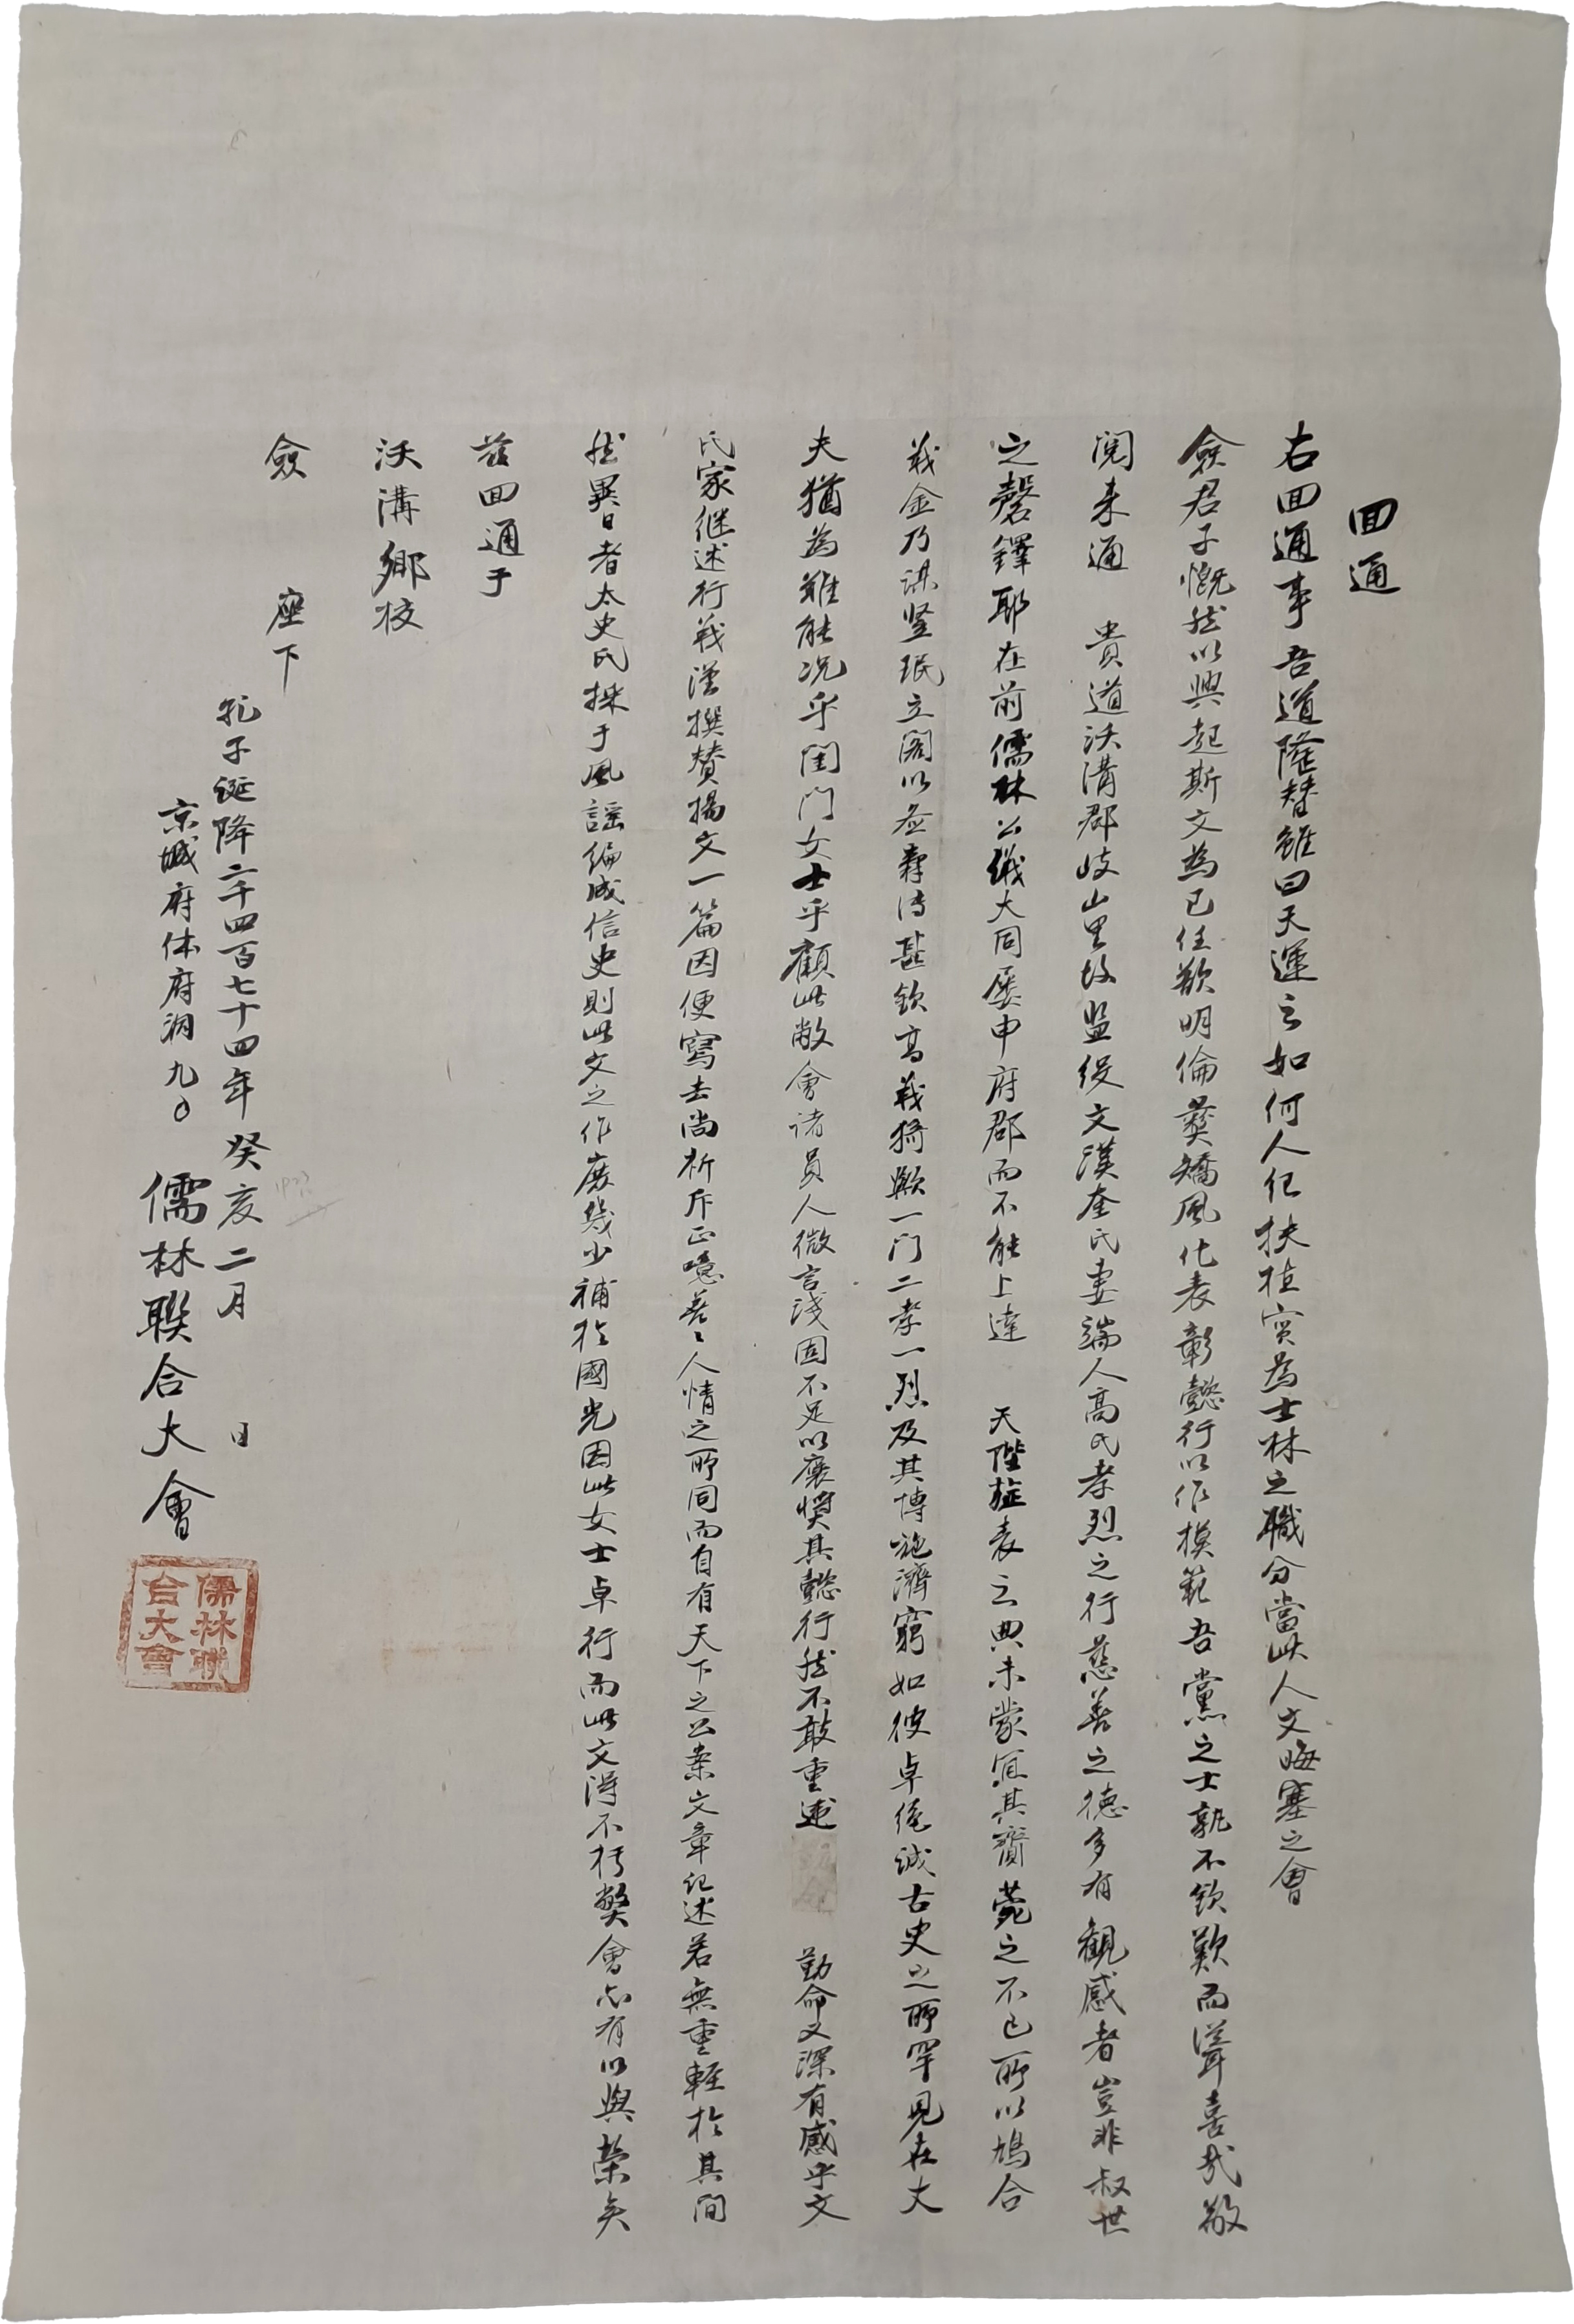 回通
右回通事吾道隆替雖曰天運之如何人紀扶植實爲士林之職分當此人文晦塞之會
僉君子慨然以興起斯文爲己任歡明倫彛矯風化表彰懿行以作模範吾黨之士孰不欽歎而聳喜哉敬
閱来通 貴道沃溝郡岐山里故監役文漢奎氏妻端人高氏孝烈之行慈善之德多有觀感者豈非叔世
之磬鐸耶在前儒林公議大同屡申府郡而不能上達 天陛旌表之典未蒙宜其齎菀之不已所以鳩合
義金乃謀竖珉立閣以壽傳甚欽高義猗歟一門二孝一烈及其博施濟窮如彼卓絶誠古史之所罕見在丈
夫猶爲難能况乎閨門女士乎顧此敝會諸員人微言淺固不足以褒奬其懿行然不敢重違 勤命又深有感乎文
氏家継述行義漫撰贊揚文一篇因便寫去尚祈斥正噫善善人情之所同而自有天下之公案文章記述若無重輕於其間
然異日者太史氏採于風謡編成信史則此文之作庶幾少補於國光因此女士卓行而此文得不朽弊會亦有以與榮矣
玆回通于
沃溝鄉校
僉 座下
孔子誕降二千四百七十四年癸亥二月 日
京城府体府洞九〇 儒林聯合大會
儒林聯合大會